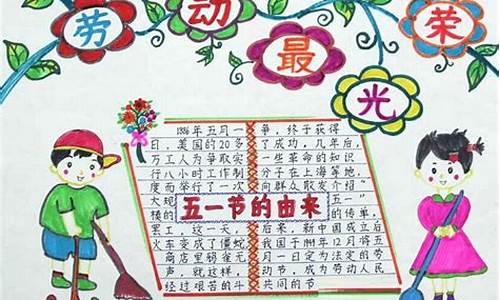 劳动最光荣
1886年五月一
日,美国的20多
万工人为争取实
行八小时工作制
度而举行了一次
大
模的
罢工,这一天
火车变成了僵蛇
商店里鸦雀无
声,就这样,
经过艰苦的斗
五一节的由来
争,终于获得
了成功,几年后,
一些革命的知识
分子在上海等地,
向群众散发介绍
五一"
的传单,
后来,新中国成立后
我国于1949年12月将五
月一日定为法定的劳
动节,成为劳动人民
共同的节